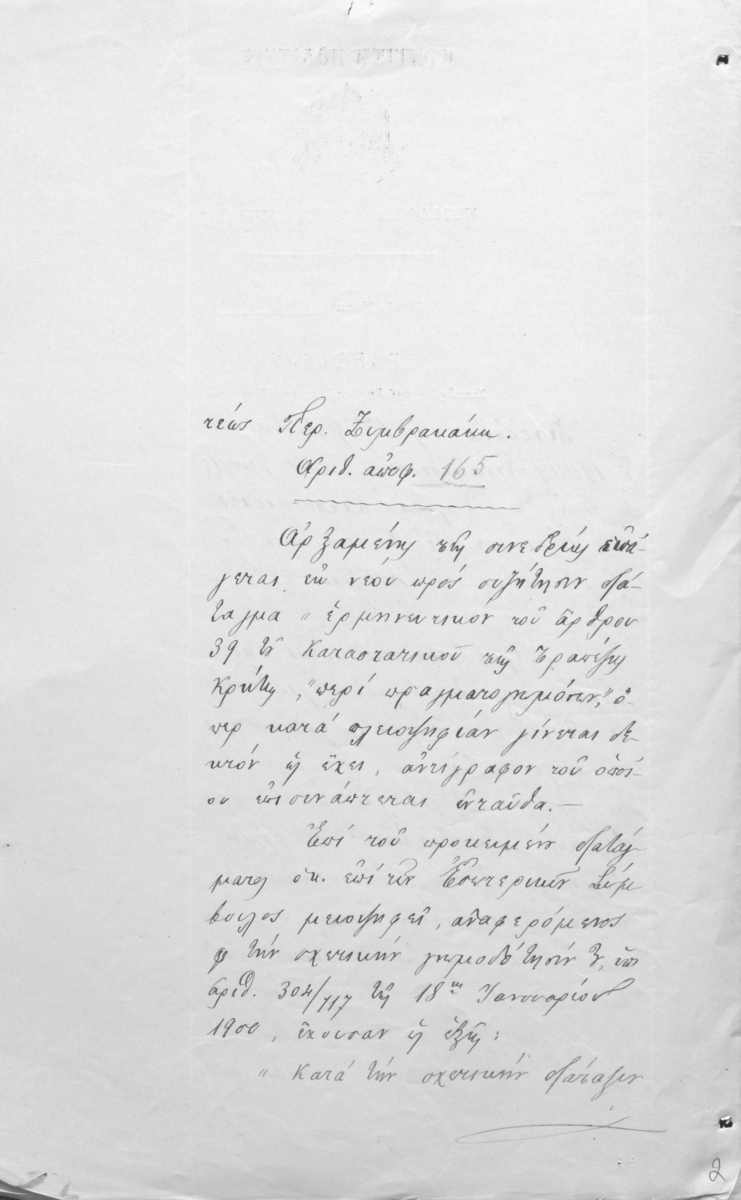 τέως Περ. Ζυμβρακάκη.
Αριθ. αποφ. 165
Αρξαμένης τῆς συνεδρίας εἰσά-
γεται ἐκ νέου πρὸς συζήτησιν διά-
ταγμα „ ἑρμηνευτικὸν τοῦ ἄρθρου
39 τοῦ Καταστατικοῦ τῆς Τραπέζης
Κρήτης, "περὶ πραγματογνωμόνων," ὅ-
περ κατὰ πλειοψηφίαν γίνεται δε-
κτὸν ὡς ἔχει, ἀντίγραφον τοῦ ὁποί-
ου ἐπισυνάπτεται ἐνταῦθα. —
Ἐπὶ τοῦ προκειμένου διατάγ-
ματος ὁ κ. ἐπὶ τῶν Ἐσωτερικῶν Σύμ-
βουλος μειοψηφεῖ, ἀναφερόμενος
εἰς τὴν σχετικὴν γνωμοδότησίν του, ὑπ'
ἀριθ. 304/717 τῆς 18ης Ἰανουαρίου
1900, ἔχουσαν ὡς ἑξῆς:
„ Κατὰ τὴν σχετικὴν διάταξιν
2